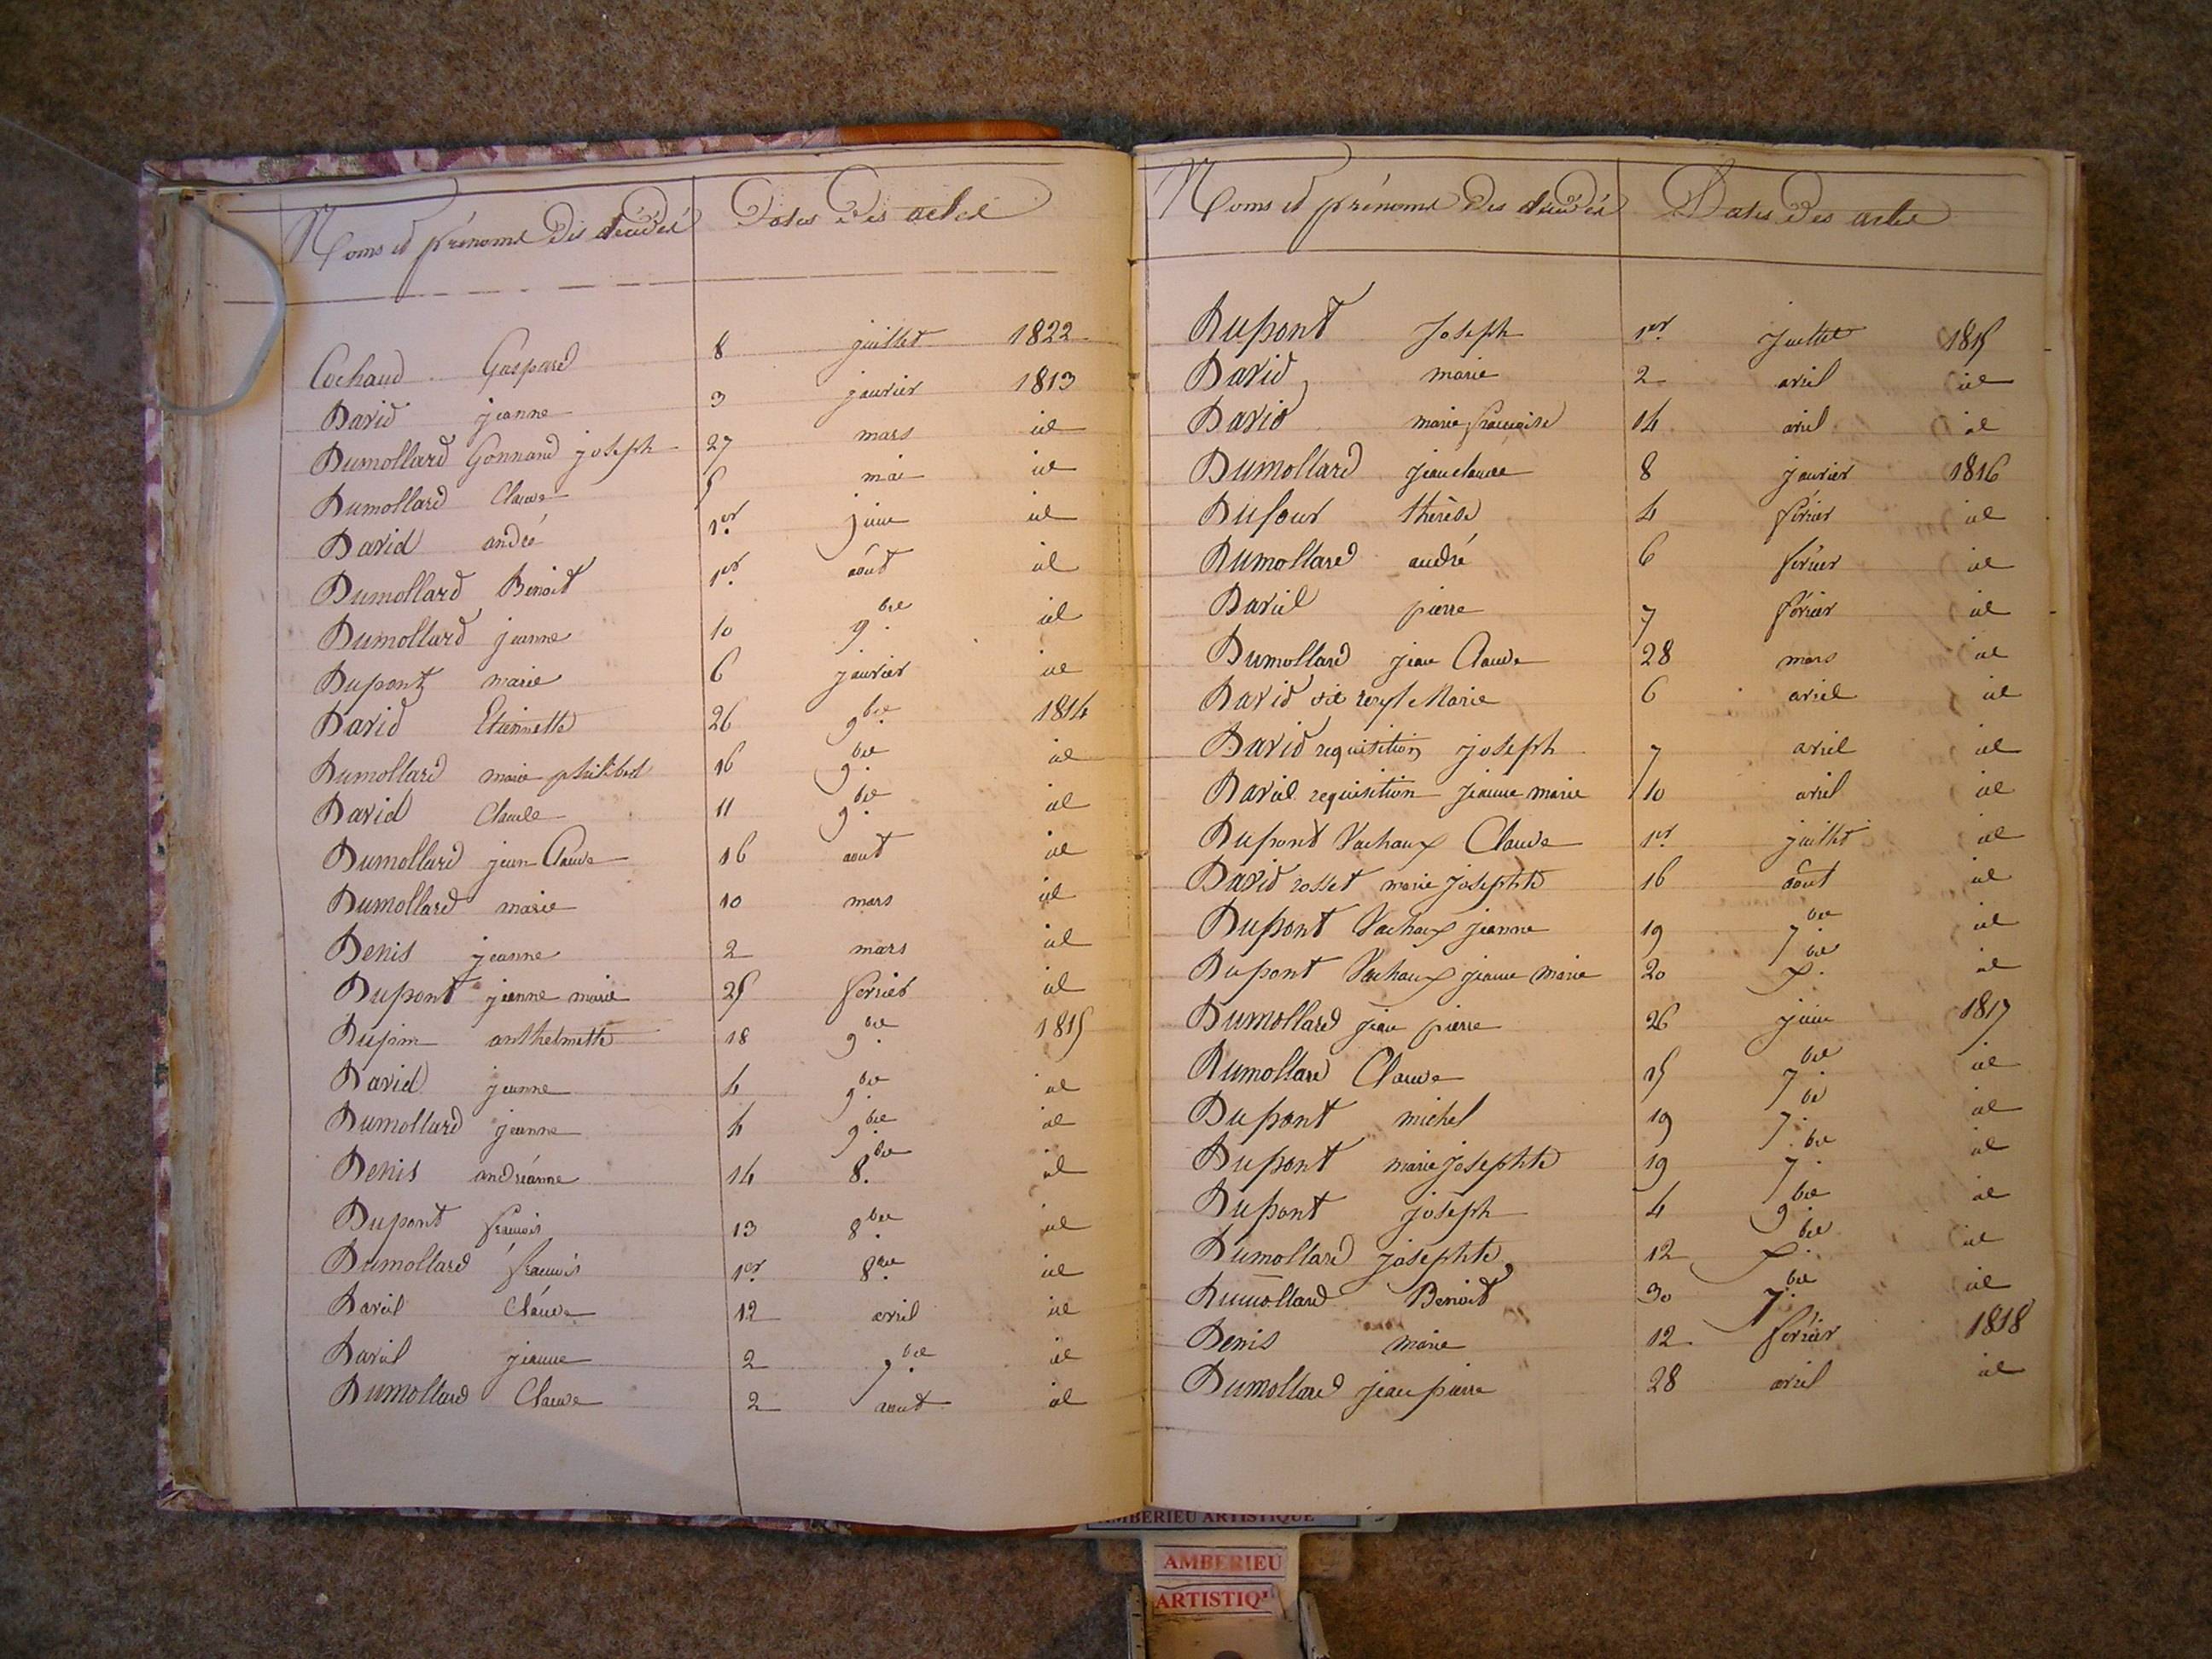 Noms et prénoms des décédés Dates des actes
Cochaud Gaspard 8 juillet 1822
David jeanne 3 janvier 1813
Dumollard Gonnand joseph 27 mars id
Dumollard Claude 5 mai id
David andré 1er juin id
Dumollard Benoit 1er août id
Dumollard jeanne 10 9bre id
Dupont marie 6 janvier id
David Etiennette 26 9bre 1814
Dumollard marie philibert 16 9bre id
David Claude 11 9bre id
Dumollard jean Claude 16 aout id
Dumollard marie 10 mars id
Denis jeanne 2 mars id
Dupont jeanne marie 25 fevrier id
anthelmette 18 9bre 1815
David jeanne 4 9bre id
Dumollard jeanne 4 9bre id
Denis andréanne 14 8bre id
Dupont francois 13 8bre id
Dumollard francois 1er 8bre id
David Claude 12 avril id
David jeanne 2 9bre id
Dumollard Claude 2 aout id
Noms et prénoms des décédés Dates des actes
Dupont Joseph 1er Juillet 1815
David marie 2 avril id
David marie francoise 14 avril id
Dumollard jean claude 8 janvier 1816
Dufour thérèse 4 février id
Dumollard andré 6 février id
David pierre 7 février id
Dumollard jean Claude 28 mars id
David dit Marie 6 avril id
David requisition joseph 7 avril id
David requisition jeanne marie 10 avril id
Dupont Vachaux Claude 1er juillet id
David rosset marie Josephte 16 août id
Dupont Vachaux jeanne 19 7bre id
Dupont Vachaux jeanne marie 20 x. id
Dumollard jean pierre 26 juin 1817
Dumollard Claude 15 7bre id
Dupont michel 19 7bre id
Dupont marie Josephte 19 7bre id
Dupont joseph 4 9bre id
Dumollard josephte 12 xbre id
Dumollard Benoit 30 7bre id
Denis marie 12 février 1818
Dumollard jean pierre 28 avril id
AMBERIEU ARTISTIQUE
AMBERIEU
ARTISTIQ